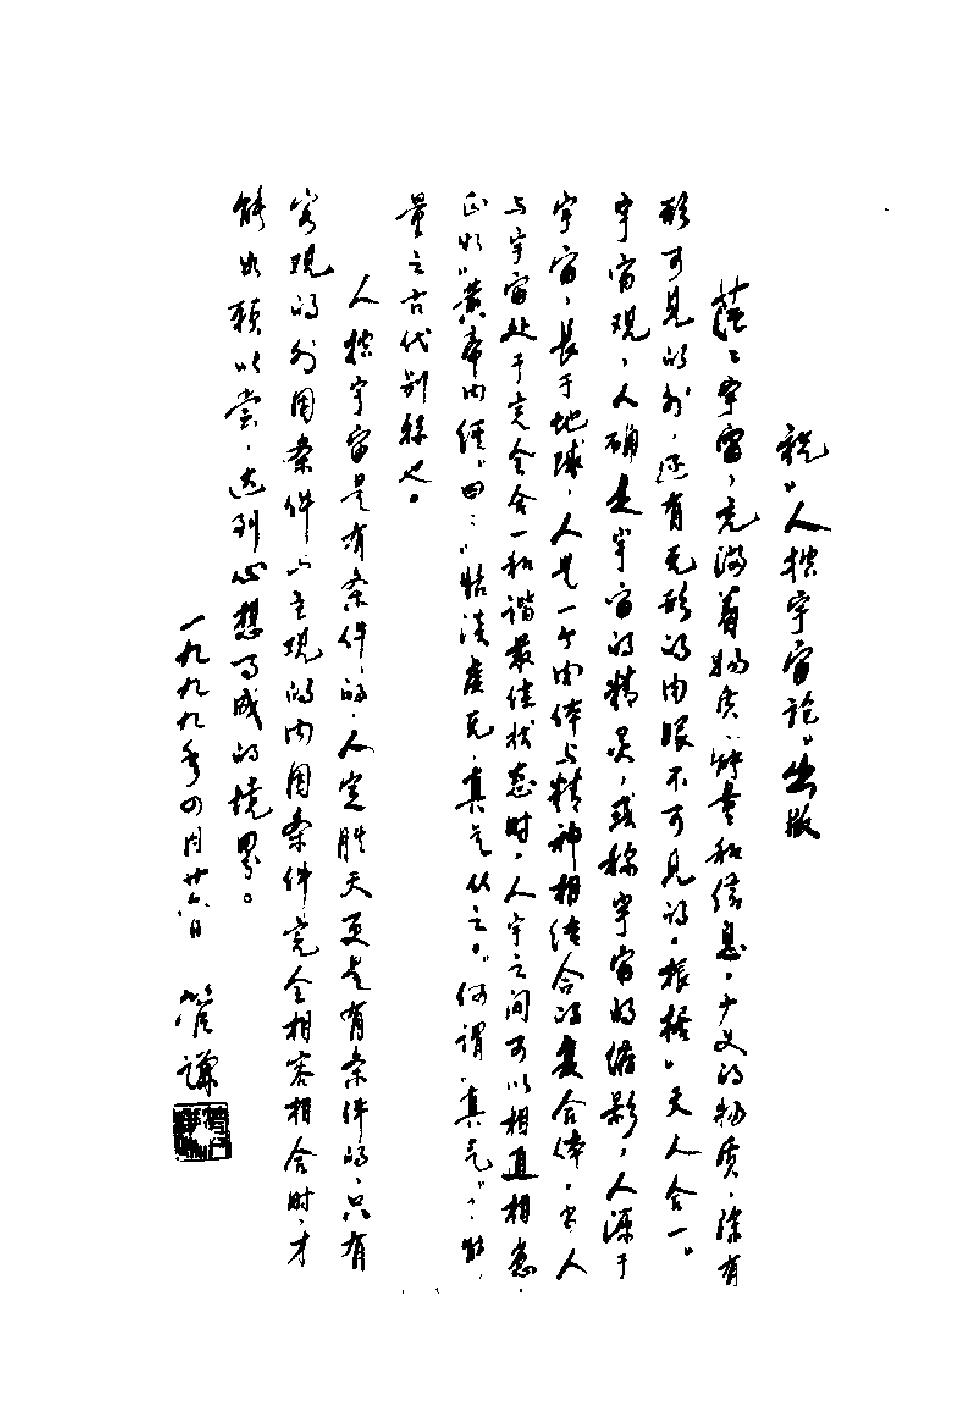 祝"人控宇宙论"出版
茫茫宇宙，充满着物质、能量和信息。少义的物质，除有
形可见的外，还有无形的肉眼不可见的。根据"天人合一"
宇宙观，人确是宇宙的精灵，或称宇宙的缩影，人源于
宇宙，长于地球，人是一个肉体与精神相结合的复合体。当人
与宇宙处于完全合一和谐最佳状态时，人宇之间可以相通相感，
正如"黄帝内经"曰："恬淡虚无，真气从之"。何谓"真气"？能
量之古代别称也。
人控宇宙是有条件的，人定胜天更是有条件的，只有
客观的外因条件与主观的内因条件完全相容相合时，才
能如愿以尝，达到心想事成的境界。
一九九九年四月廿六日 管谦